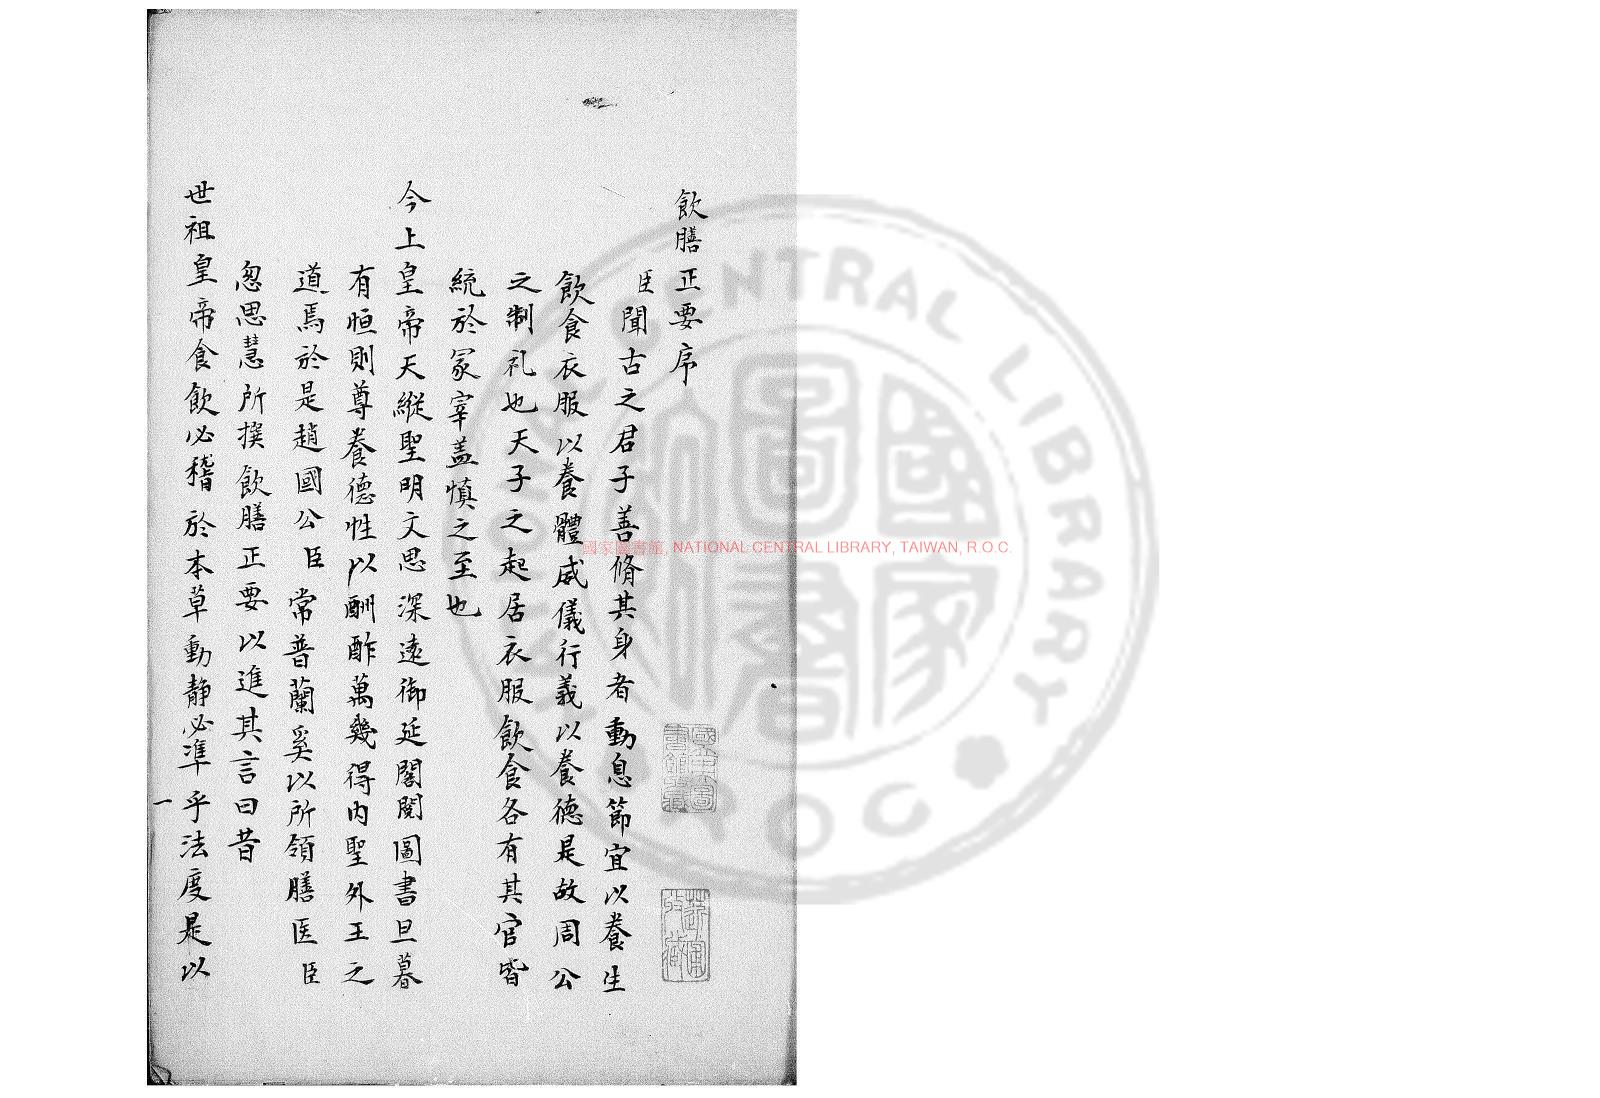 飲膳正要序
臣聞古之君子善脩其身者動息節宜以養生
飲食衣服以養體威儀行義以養德是故周公
之制礼也天子之起居衣服飲食各有其官皆
統於冢宰盖慎之至也
今上皇帝天縱聖明文思深遠御延閣閱圖書旦暮
有恒則尊養德性以酬酢萬幾得内聖外王之
道焉於是趙國公臣常普蘭奚以所領膳医臣
忽思慧所撰飲膳正要以進其言曰昔
世祖皇帝食飲必稽於本草動静必準乎法度是以
一
國家圖書館, NATIONAL CENTRAL LIBRARY, TAIWAN, R.O.C.
NATIONAL CENTRAL LIBRARY ROC
國家圖書